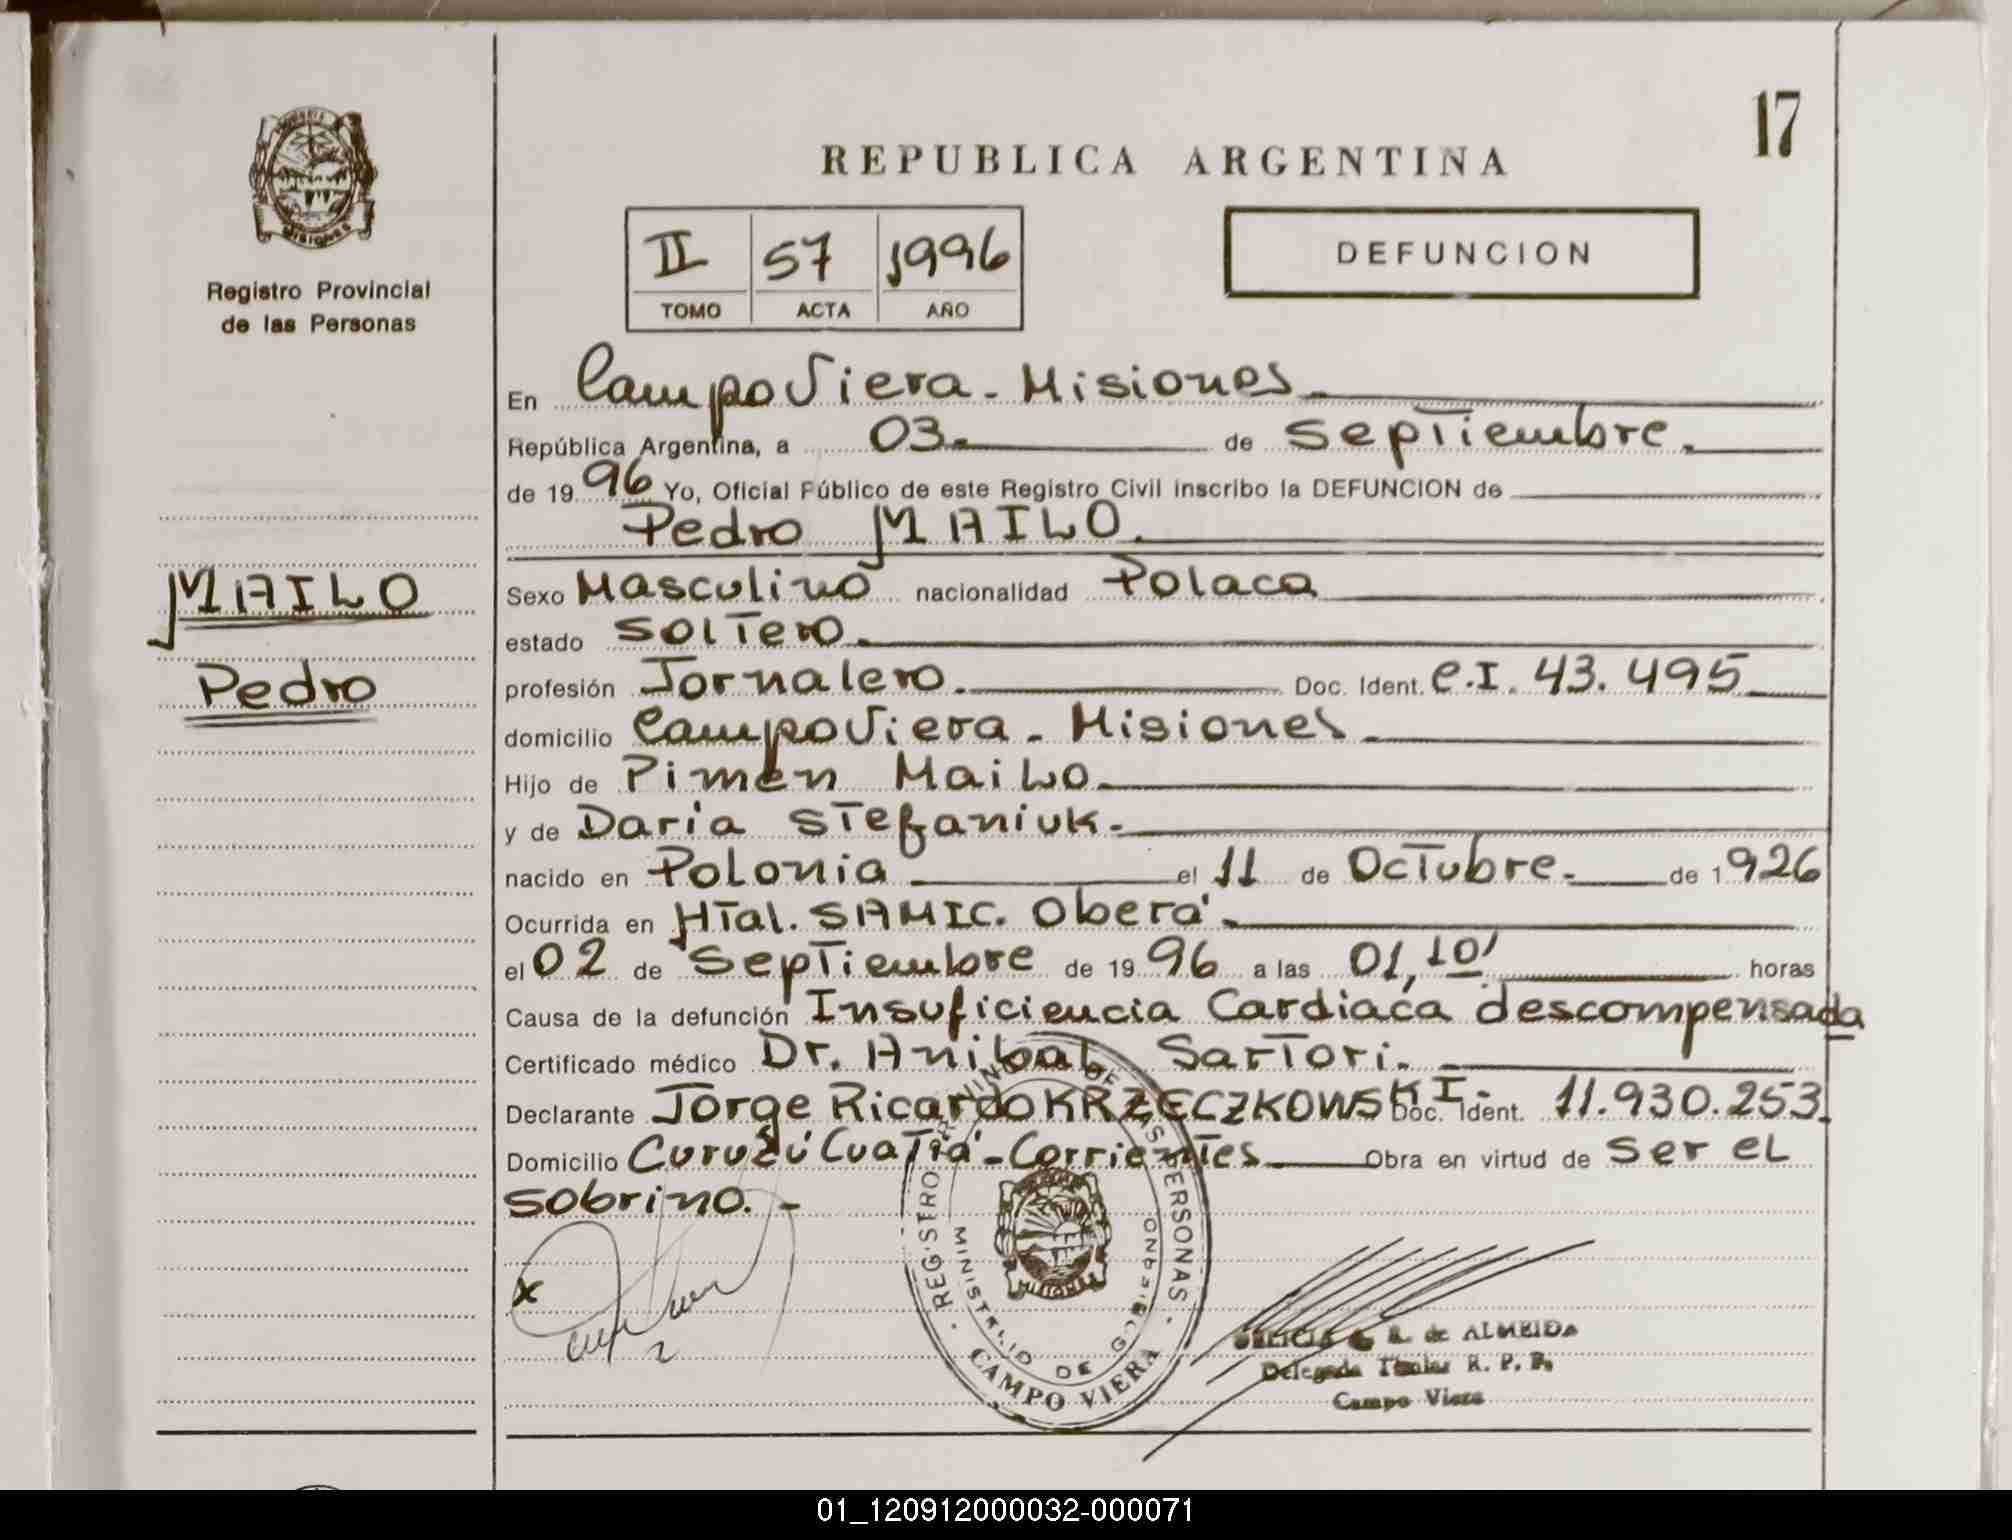 17
REPUBLICA ARGENTINA
MISIONES
Registro Provincial
de las Personas
II 57 1996
TOMO ACTA AÑO
DEFUNCION
En Campo Viera - Misiones
República Argentina, a 03 de Septiembre.
de 1996 Yo, Oficial Público de este Registro Civil inscribo la DEFUNCION de
Pedro MAILO.
MAILO
Pedro
Sexo Masculino nacionalidad Polaca
estado Soltero.
profesión Jornalero. Doc. Ident. C.I. 43.495
domicilio Campo Viera - Misiones
Hijo de Pimen Mailo
y de Daria Stefaniuk.
nacido en Polonia el 11 de Octubre. de 1926
Ocurrida en Htal. SAMIC. Oberá.
el 02 de Septiembre de 1996 a las 01,10' horas
Causa de la defunción Insuficiencia Cardiaca descompensada
Certificado médico Dr. Anibal Sartori.
Declarante Jorge Ricardo KRZECZKOWSKI. Doc. Ident. 11.930.253.
Domicilio Curuzú Cuatiá - Corrientes Obra en virtud de Ser el
Sobrino. -
x
REGISTRO DE LAS PERSONAS
MINISTERIO DE GOBIERNO
CAMPO VIERA
de ALMEIDA
Delegada Titular R. P. P.
Campo Viera
01_120912000032-000071